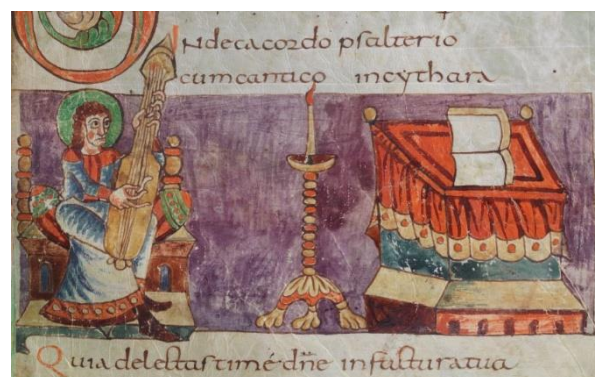 INdecacordo psalterio
cumcantico incythara
Quia delectastime dn̄e infacturatua